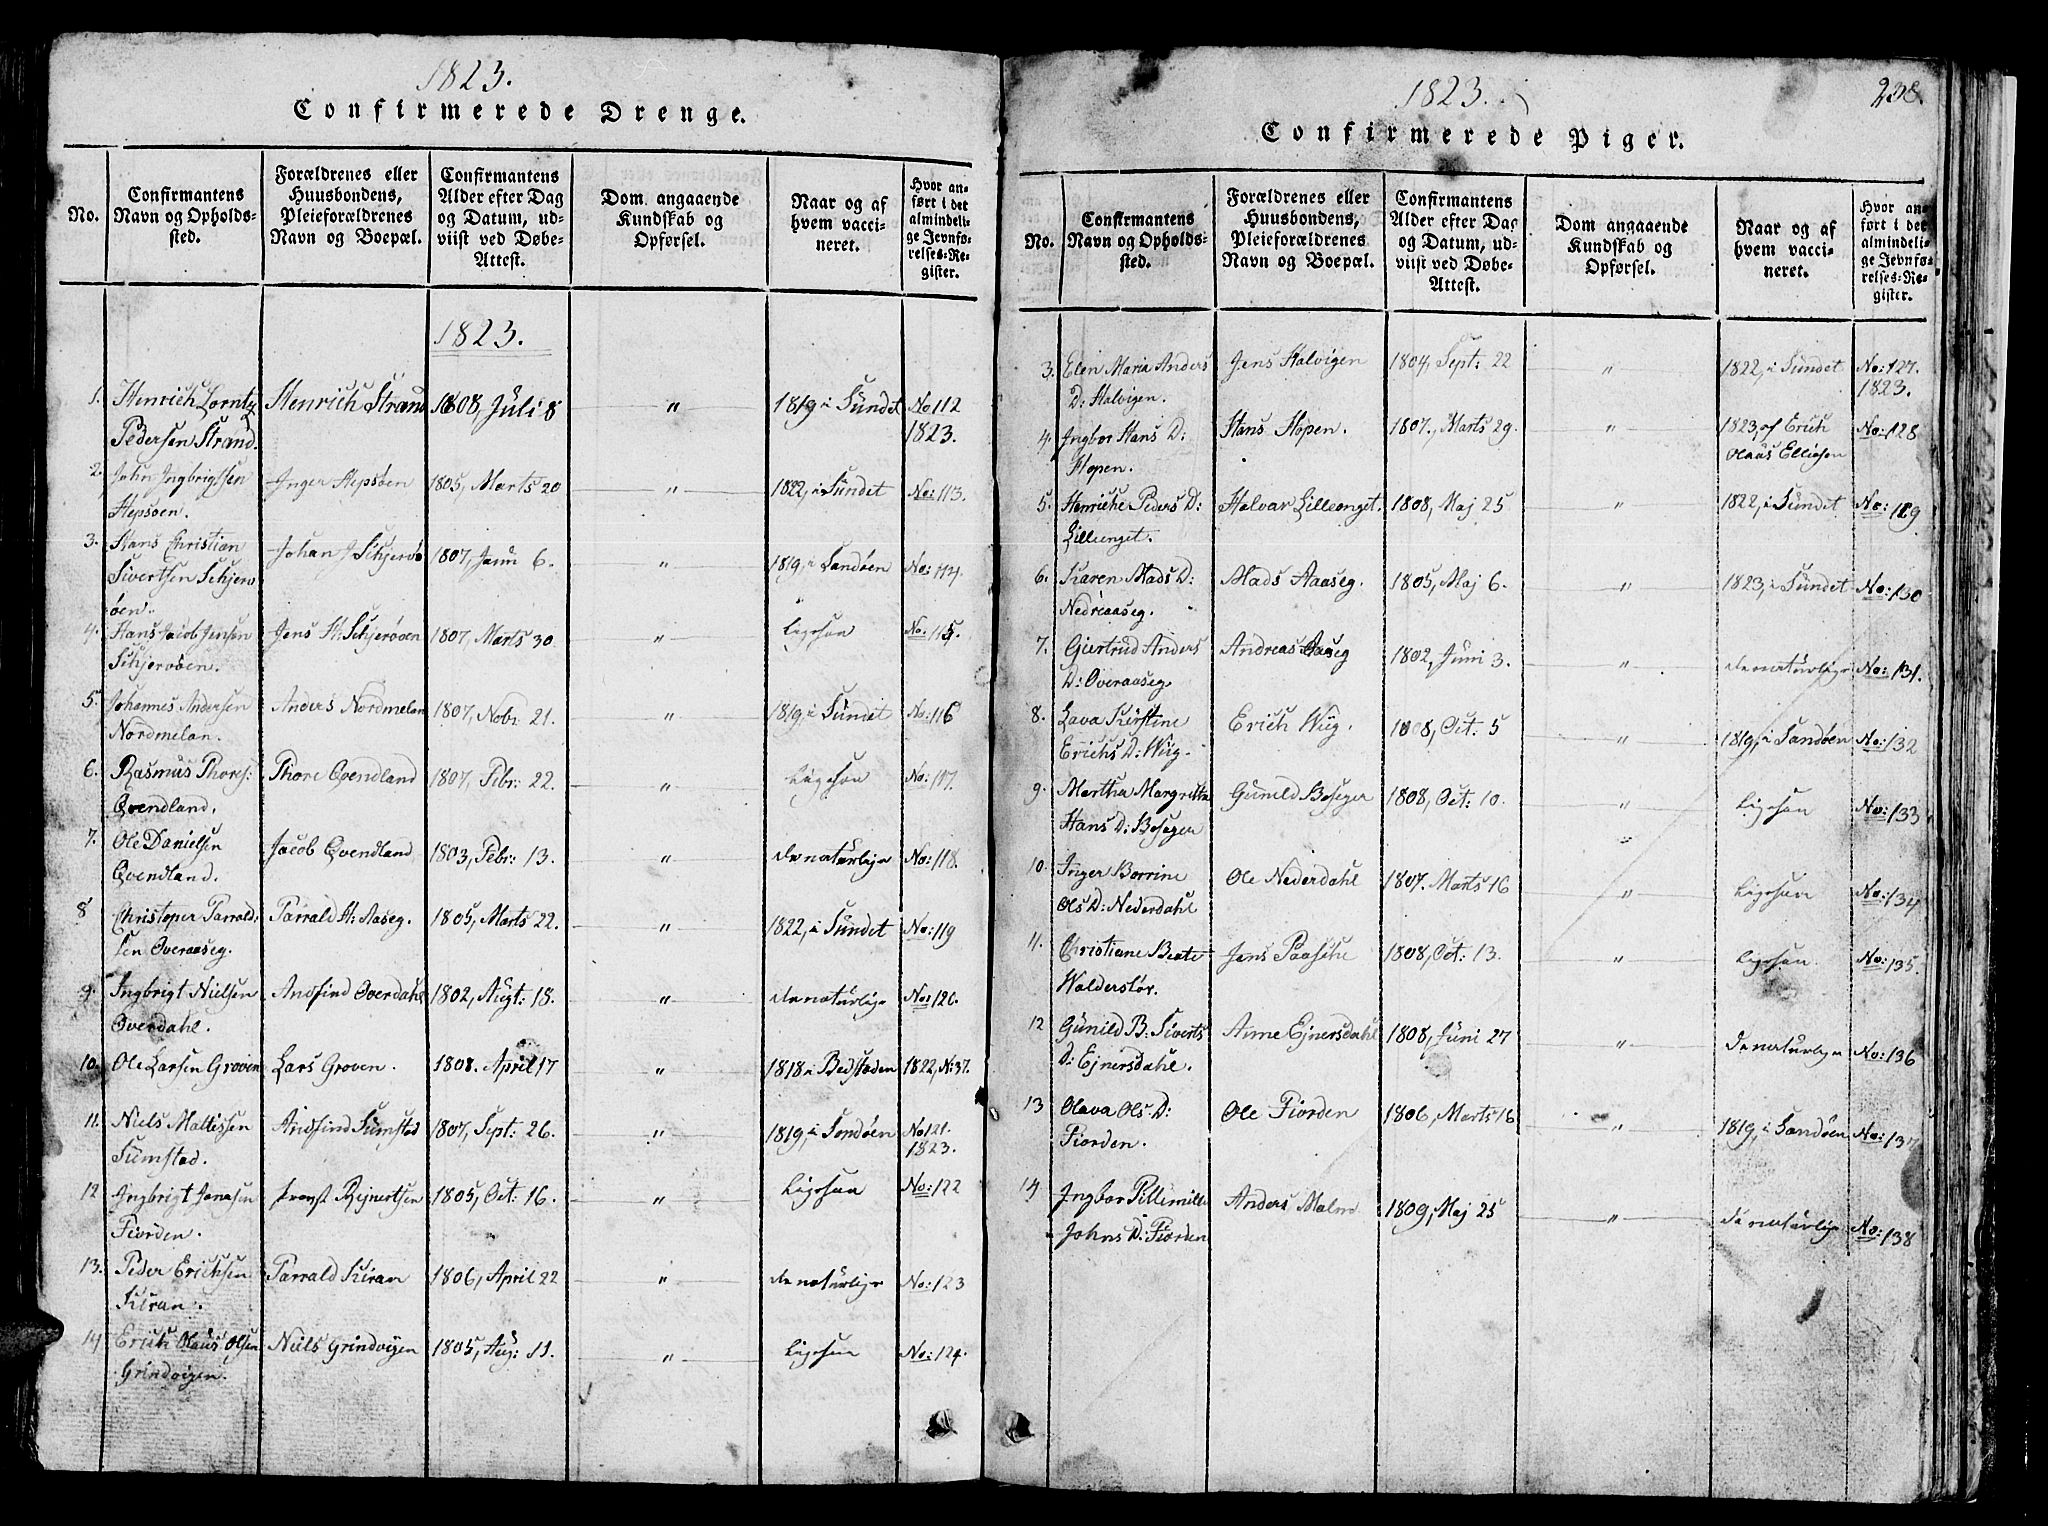 1823.
Confirmerede Drenge.
No.
Confirmantens Navn og Opholdssted.
Forældrenes eller Huusbondens, Pleieforældrenes Navn og Boepæl.
Confirmantens Alder efter Dag og Datum, udviist ved Døbe-Attest.
Dom angaaende Kundskab og Opførsel.
Naar og af hvem vaccineret.
Hvor anført i det almindelige Jevnførelses-Register.
1823.
1. Henrich Lorntz Henrich Strand 1808, Juli 8 " 1819 i Sundet No 112
Pedersen Strand. 1823.
2. John Ingbrigtsen Inger Hepsøen 1805, Marts 20 " 1822, i Sundet No: 113.
Hepsøen.
3. Hans Christian Johan J Schjervø 1807, Janu 6. " 1819, i Sandøen No: 114.
Sivertsen Schjerv
øen.
4. Hans Jacob Jensen Jens H: Schjervøen 1807, Marts 30 " Ligesaa No: 115.
Schjervøen.
5. Johannes Andersen Anders Nordmelan 1807, Nobr: 21. " 1819, i Sundet No: 116
Nordmelan.
6. Rasmus Thores: Thore Qvendland 1807, Febr: 22. " Ligesaa No: 117.
Qvendland.
7. Ole Danielsen Jacob Qvendland 1803, Febr: 13. " de naturlige No: 118.
Qvendland.
8 Christoper Tarrald: Tarrald H: Aaseg. 1805, Marts 22. " 1822, i Sundet No: 119
sen Overaaseg.
9. Ingbrigt Nielsen Andfind Overdahl 1802, Augt: 18. " de naturlige No: 120.
Overdahl.
10. Ole Larsen Groven Lars Groven. 1808. April 17 " 1818 i Bedstaden 1822, N: 37.
11. Niels Mattissen Andfind Sumstad 1807, Sept: 26. " 1819, i Sandøen No 121.
Sumstad. 1823.
12 Ingbrigt Jonasen Rejnertsen 1805, Oct: 16. " Ligesaa No: 122
Fiorden.
13. Peder Erichsen Tarrald Kiran 1806, April 22 " de naturlige No: 123
Kiran.
14 Erich Olaus Olsen Niels Grindvigen 1805, Aug: 11. " Ligesaa No: 124.
Grindvigen.
1823.
238.
Confirmerede Piger.
No.
Confirmantens Navn og Opholdssted.
Forældrenes eller Huusbondens, Pleieforældrenes Navn og Boepæl.
Confirmantens Alder efter Dag og Datum, udviist ved Døbe-Attest.
Dom angaaende Kundskab og Opførsel.
Naar og af hvem vaccineret.
Hvor anført i det almindelige Jevnførelses-Register.
3. Elen Maria Anders Jens Halvigen 1804, Sept: 22 " 1822, i Sundet No: 127.
D: Halvigen. 1823.
4. Ingbor Hans D: Hans Hopen. 1807., Marts 29. " 1823, af Erich No: 128
Hopen. Olaus Ellingsen
5. Henriche Peders D: Halvar Lilleenget. 1808, Maj 25 " 1822, i Sundet No: 129
Lilleenget.
6. Karen Mads D: Mads Aaseg. 1805, Maj 6. " 1823, i Sundet No: 130
Nedreaaseg.
7. Giertrud Anders Andreas Aaseg 1802, Juni 3. " de naturlige No: 131.
D: Overaaseg
8. Lava Kirstine Erich Wiig. 1808, Oct: 5 " 1819, i Sandøen No: 132
Erichs D: Wiig.
9. Martha Margretta Gunild Beseger 1808, Oct: 10. " Ligesaa No: 133
Hans D: Beseger
10. Inger Borrine Ole Nederdahl 1807. Marts 16 " Ligesaa No: 134
Ols D: Nederdahl
11. Christiane Beate Jens Paasche 1808, Oct: 13. " Ligesaa. No: 135.
Walderslør.
12 Gunild B: Siverts Anne Ejnersdahl 1808, Juni 27 " de naturlige No: 136
D: Ejnersdahl.
13 Olava Ols D: Ole Fiorden 1806, Marts 16 " 1819, i Sandøen No: 137
Fiorden.
14 Ingbor Anders Malm 1809, Maj 25 " de naturlige No: 138
Johns D: Fiorden